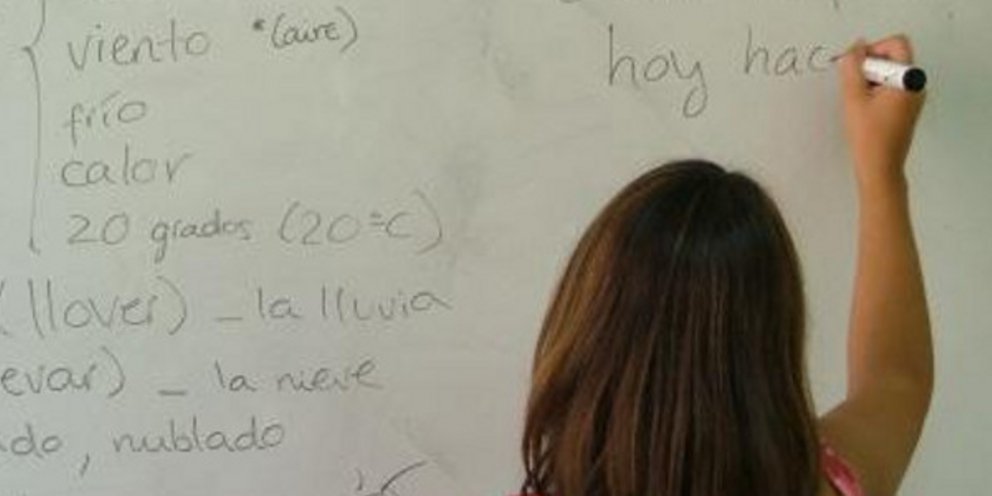 viento *(aire)
frío
calor
20 grados (20ºC)
(llover) - la lluvia
evar) - la nieve
do, nublado
hoy hac